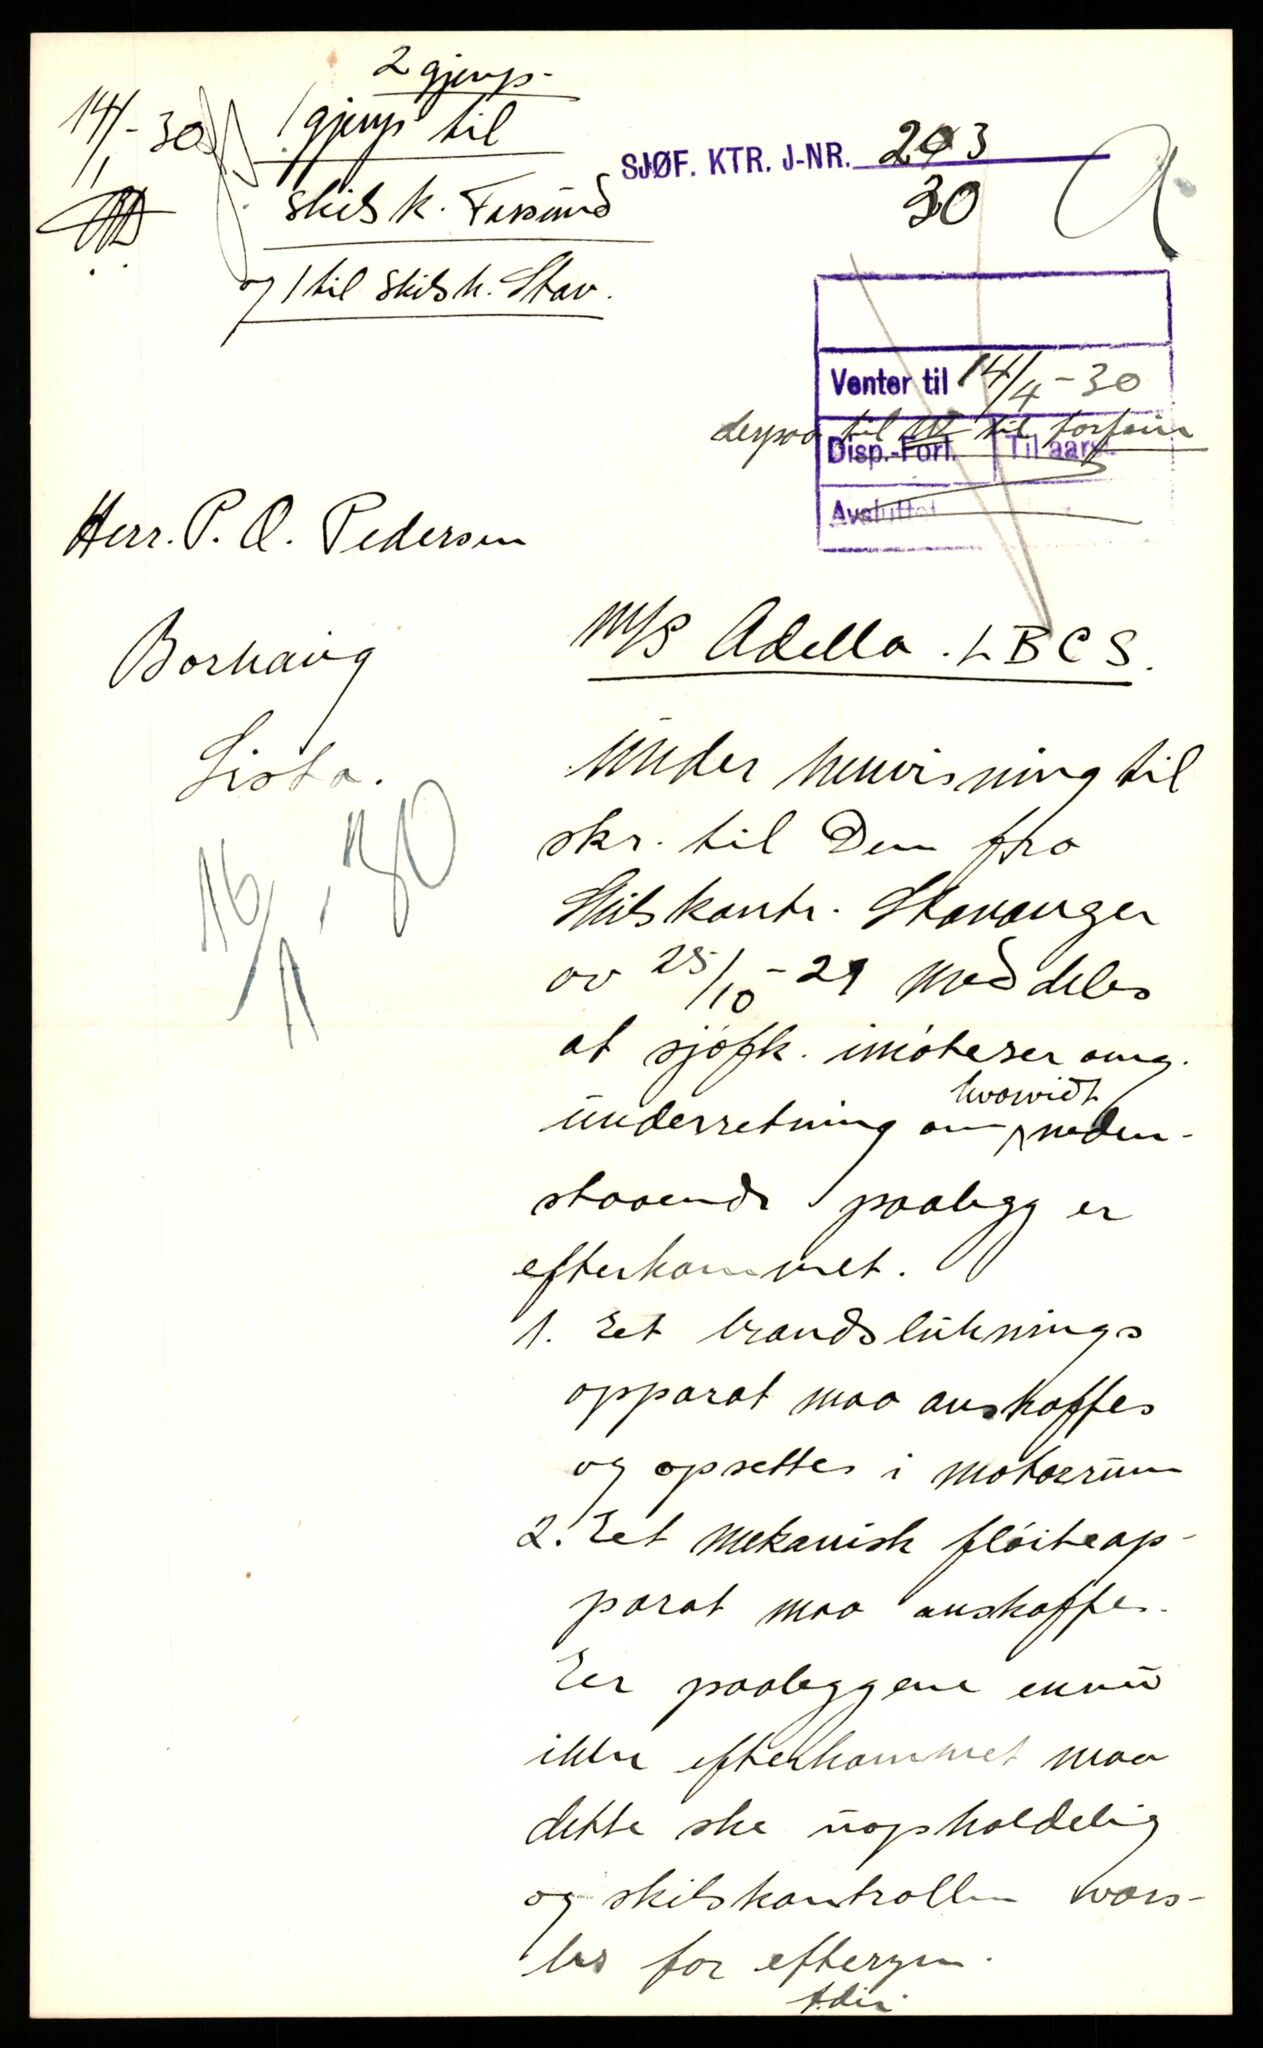 2 gjenp.
14/1-30
1 gjenp til
skibsk. Farsund
og 1 til skibsk. Stav.
SJØF. KTR. J-NR. 203
30
Venter til 14/4-30
derpaa til til forfoin
Disp.-Forl. Til aarv.
Avsluttet
Herr. P. O. Pedersen
Borhaug
Lista.
16/1.30
M/S Adella. LBCS.
Under henvisning til
skr. til Dem fra
Skibskontr. Stavanger
av 25/10-29 meddeles
at sjøfk. imøteser omg.
underretning om hvorvidt neden-
staaende paalegg er
efterkommet.
1. Eet brandsluknings
apparat maa anskaffes
og opsettes i motorrum
2. Eet mekanisk fløiteap-
parat maa anskaffes.
Er paaleggene ennu
ikke efterkommet maa
dette ske uopholdelig
og skibskontrollen vars-
les for eftersyn.